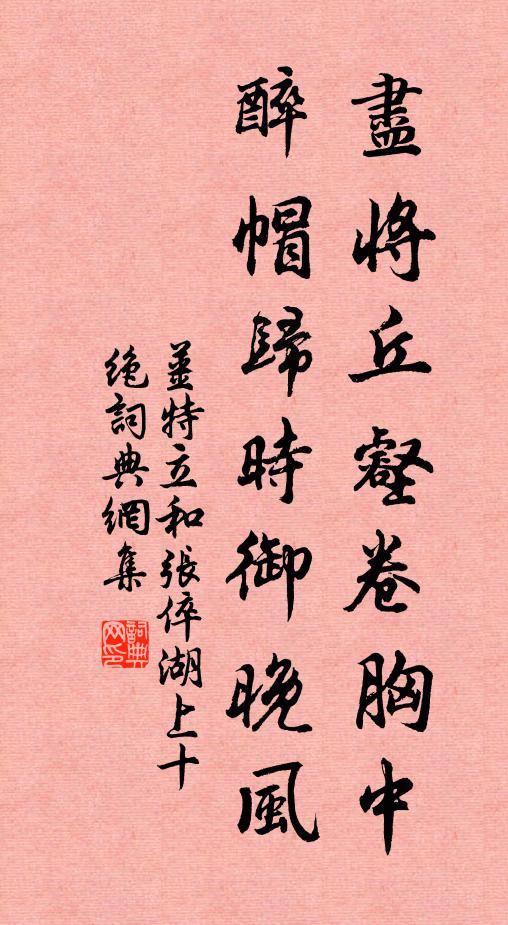 盡將丘壑卷胸中
醉帽歸時御晚風
姜特立和張倅湖上十
絶詞典網集
詞典
网印